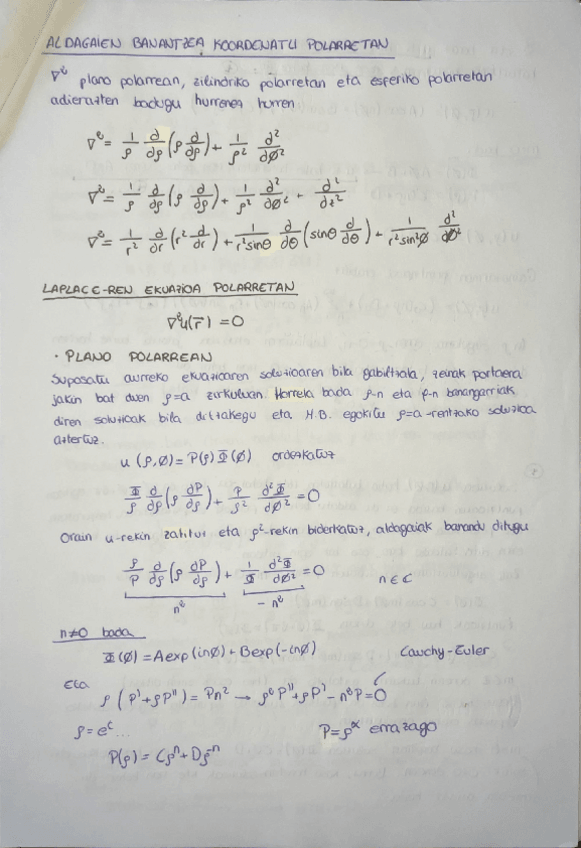 ALDAGAIEN BANANTZEA KOORDENATU POLARRETAN
∇² plano polarrean, zilindriko polarretan eta esferiko polarretan
adierazten badugu hurrenez hurren
∇² = 1/ρ d/dρ (ρ d/dρ) + 1/ρ² d²/dø²
∇² = 1/ρ d/dρ (ρ d/dρ) + 1/ρ² d²/dø² + d²/dz²
∇² = 1/r² d/dr (r² d/dr) + 1/r²sinθ d/dθ (sinθ d/dθ) + 1/r²sin²ø d²/dø²
LAPLACE-REN EKUAZIOA POLARRETAN
∇²u(r̄) = 0
· PLANO POLARREAN
Suposatu aurreko ekuazioaren soluzioaren bila gabiltzala, zeinak portaera
jakin bat duen ρ=a zirkuluan. Horrela bada ρ-n eta ø-n banangarriak
diren soluzioak bila ditzakegu eta H.B. egokitu ρ=a-rentzako soluzioa
aztertuz.
u(ρ,ø) = P(ρ)Φ(ø) ordezkatuz
Φ/ρ d/dρ (ρ dP/dρ) + P/ρ² d²Φ/dø² = 0
Orain u-rekin zatituz eta ρ²-rekin biderkatuz, aldagaiak banandu ditugu
ρ/P d/dρ (ρ dP/dρ) + 1/Φ d²Φ/dø² = 0 n∈C
n² -n²
n≠0 bada
Φ(ø) = A exp(inø) + B exp(-inø) Cauchy-Euler
eta
ρ(P'+ρP'') = Pn² → ρ²P''+ρP'-n²P=0
ρ=eᵗ... P=ρ^α errazago
P(ρ) = Cρⁿ + Dρ⁻ⁿ